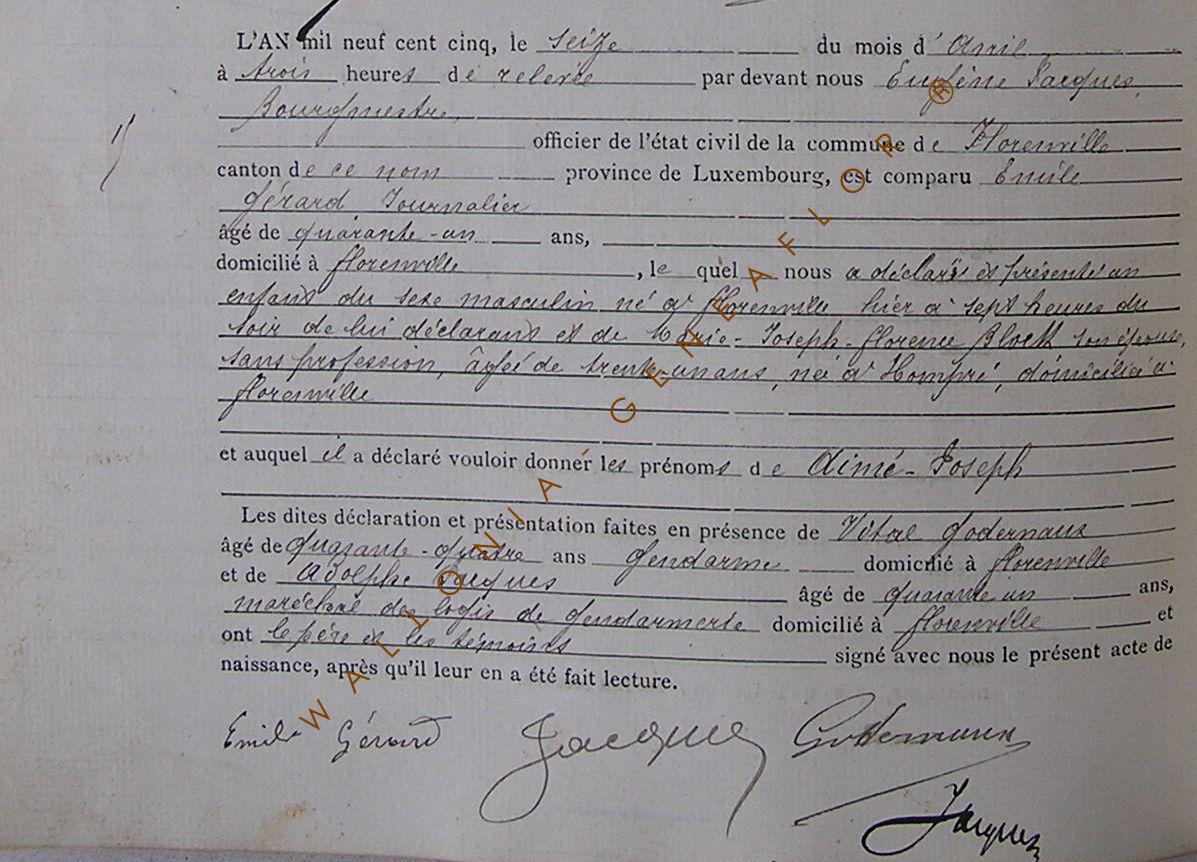 L'AN mil neuf cent cinq, le seize du mois d'Avril
à trois heures de relevée par devant nous Eugène Jacques,
Bourgmestre,
officier de l'état civil de la commune de Florenville
canton de ce nom province de Luxembourg, est comparu Emile
Gérard Journalier
âgé de quarante-un ans,
domicilié à florenville, le quel nous a déclaré et présenté un
enfant du sexe masculin né à florenville hier à sept heures du
soir de lui déclarant et de Marie-Joseph-florence Block son épouse,
sans profession, âgée de trente-un ans, née à Hompré, domiciliée à
florenville
et auquel il a déclaré vouloir donner les prénoms de Aimé-Joseph
Les dites déclaration et présentation faites en présence de Vital Godernaux
âgé de quarante-quatre ans gendarme domicilié à florenville
et de Adolphe Jacques âgé de quarante un ans,
maréchal des logis de gendarmerie domicilié à florenville et
ont le père et les témoins signé avec nous le présent acte de
naissance, après qu'il leur en a été fait lecture.
Emile Gérard Jacques Godernaux
Jacques
WALLONIA GENEAFLOR ®